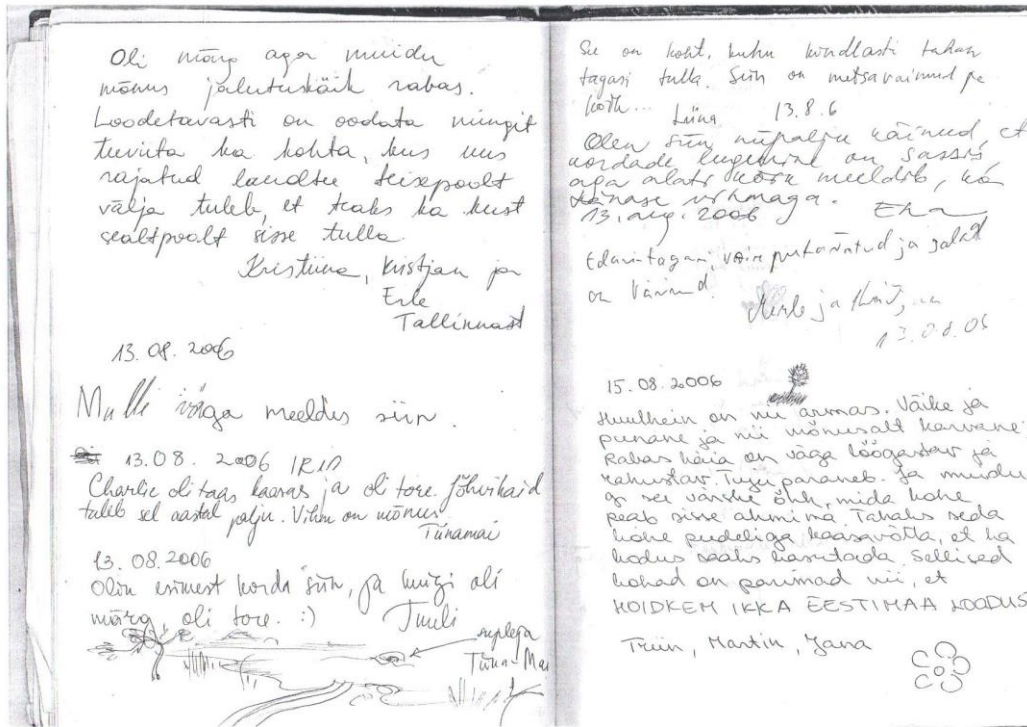 Oli märg aga muidu
mõnus jalutuskäik rabas.
Loodetavasti on oodata mingit
teeviita ka kohta, kus uus
rajatud laudtee teisepoolt
välja tuleb, et teaks ka kust
sealtpoolt sisse tulla.
Kristiina, Kristjan ja
Erle
Tallinnast
13.08.2006
Mulle väga meeldis siin.
13.08.2006 IRIS
Charlie oli taas kaasas ja oli tore. Jõhvikaid
tuleb sel aastal palju. Vihm on mõnus.
Tiinamai
13.08.2006
Olin esimest korda siin, ja kuigi oli
märg, oli tore. :) Tuuli
supleja
Tiina-Mai
See on koht, kuhu kindlasti tahan
tagasi tulla. Siin on metsavaimud ja
Liina 13.8.6
Olen siin niipalju käinud, et
kordade lugemine on sassis,
aga alati meeldib, ka
tänase vihmaga.
13. aug. 2006
Edasi-tagasi, võileivad ja jalad
on
Merle ja
13.08.06
15.08.2006
Huulhein on nii armas. Väike ja
punane ja nii mõnusalt karvane.
Rabas käia on väga lõõgastav ja
rahustav. Tuju paraneb. Ja muidugi
see värske õhk, mida kohe
peab sisse ahmima. Tahaks seda
kohe pudeliga kaasa võtta, et ka
kodus saaks kasutada. Sellised
kohad on parimad nii, et
HOIDKEM IKKA EESTIMAA LOODUST
Triin, Martin, Jana